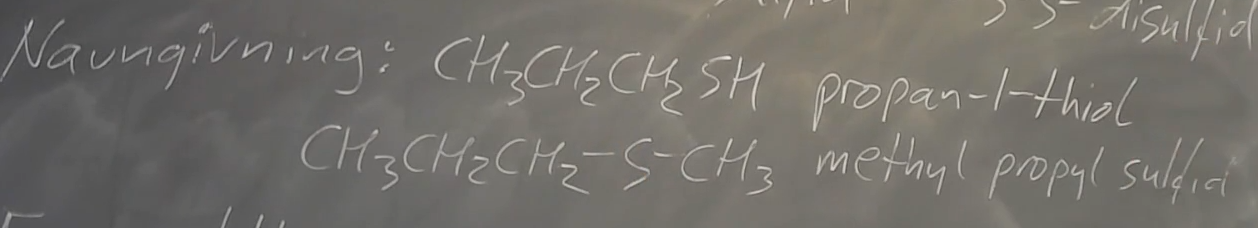 S-disulfid
Navngivning: CH₃CH₂CH₂SH propan-1-thiol
CH₃CH₂CH₂-S-CH₃ methyl propyl sulfid